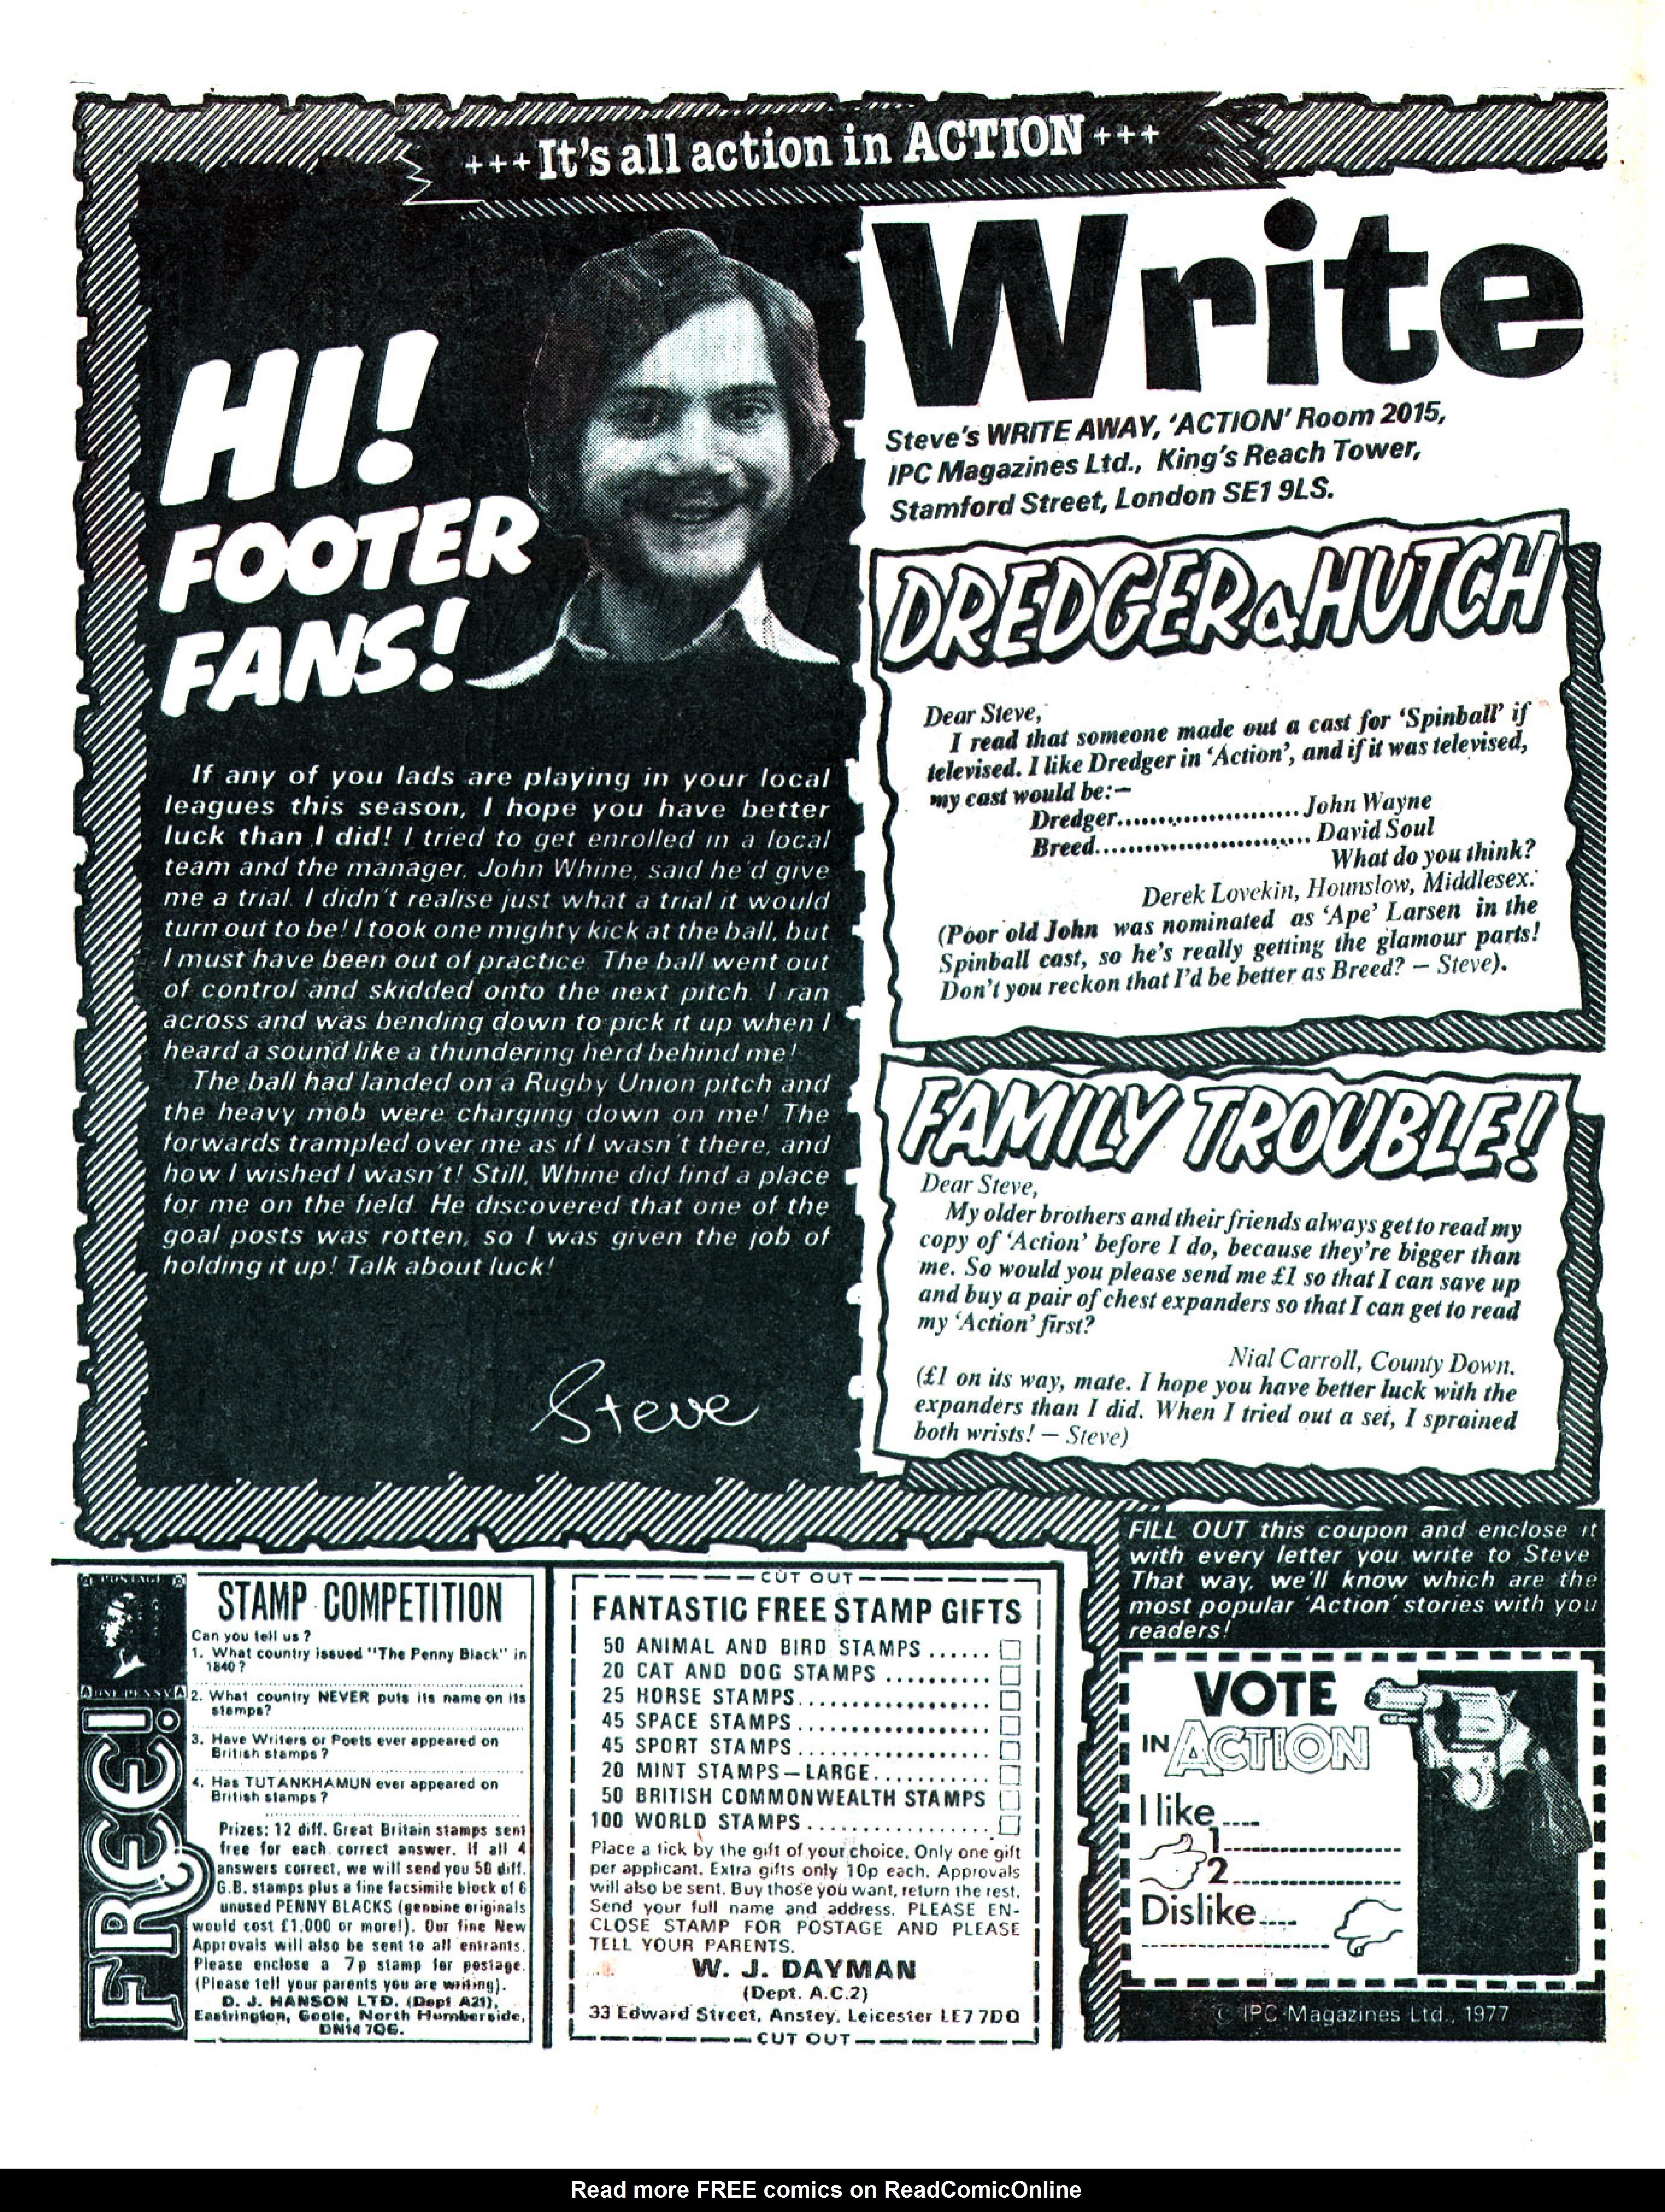 +++It's all action in ACTION+++
HI!
FOOTER
FANS!
If any of you lads are playing in your local
leagues this season, I hope you have better
luck than I did! I tried to get enrolled in a local
team and the manager, John Whine, said he'd give
me a trial. I didn't realise just what a trial it would
turn out to be! I took one mighty kick at the ball, but
I must have been out of practice. The ball went out
of control and skidded onto the next pitch. I ran
across and was bending down to pick it up when I
heard a sound like a thundering herd behind me!
The ball had landed on a Rugby Union pitch and
the heavy mob were charging down on me! The
forwards trampled over me as if I wasn't there, and
how I wished I wasn't! Still, Whine did find a place
for me on the field. He discovered that one of the
goal posts was rotten, so I was given the job of
holding it up! Talk about luck!
Steve
Write
Steve's WRITE AWAY, 'ACTION' Room 2015,
IPC Magazines Ltd., King's Reach Tower,
Stamford Street, London SE1 9LS.
DREDGER & HUTCH
Dear Steve,
I read that someone made out a cast for 'Spinball' if
televised. I like Dredger in 'Action', and if it was televised,
my cast would be:—
Dredger......................John Wayne
Breed.......................... David Soul
What do you think?
Derek Lovekin, Hounslow, Middlesex.
(Poor old John was nominated as 'Ape' Larsen in the
Spinball cast, so he's really getting the glamour parts!
Don't you reckon that I'd be better as Breed? — Steve).
FAMILY TROUBLE!
Dear Steve,
My older brothers and their friends always get to read my
copy of 'Action' before I do, because they're bigger than
me. So would you please send me £1 so that I can save up
and buy a pair of chest expanders so that I can get to read
my 'Action' first?
Nial Carroll, County Down.
(£1 on its way, mate. I hope you have better luck with the
expanders than I did. When I tried out a set, I sprained
both wrists! — Steve)
POSTAGE
ONE PENNY
FREE!
STAMP COMPETITION
Can you tell us?
1. What country issued "The Penny Black" in
1840?
2. What country NEVER puts its name on its
stamps?
3. Have Writers or Poets ever appeared on
British stamps?
4. Has TUTANKHAMUN ever appeared on
British stamps?
Prizes: 12 diff. Great Britain stamps sent
free for each correct answer. If all 4
answers correct, we will send you 50 diff.
G.B. stamps plus a fine facsimile block of 6
unused PENNY BLACKS (genuine originals
would cost £1,000 or more!). Our fine New
Approvals will also be sent to all entrants.
Please enclose a 7p stamp for postage.
(Please tell your parents you are writing).
D. J. HANSON LTD. (Dept A21),
Eastrington, Goole, North Humberside,
DN14 7QG.
CUT OUT
FANTASTIC FREE STAMP GIFTS
50 ANIMAL AND BIRD STAMPS ......
20 CAT AND DOG STAMPS ..........
25 HORSE STAMPS..................
45 SPACE STAMPS ..................
45 SPORT STAMPS ..................
20 MINT STAMPS—LARGE...........
50 BRITISH COMMONWEALTH STAMPS
100 WORLD STAMPS .................
Place a tick by the gift of your choice. Only one gift
per applicant. Extra gifts only 10p each. Approvals
will also be sent. Buy those you want, return the rest.
Send your full name and address. PLEASE EN-
CLOSE STAMP FOR POSTAGE AND PLEASE
TELL YOUR PARENTS.
W. J. DAYMAN
(Dept. A.C.2)
33 Edward Street, Anstey, Leicester LE7 7DQ
CUT OUT
FILL OUT this coupon and enclose it
with every letter you write to Steve
That way, we'll know which are the
most popular 'Action' stories with you
readers!
VOTE
IN ACTION
I like....
1
2
Dislike....
© IPC Magazines Ltd., 1977
Read more FREE comics on ReadComicOnline